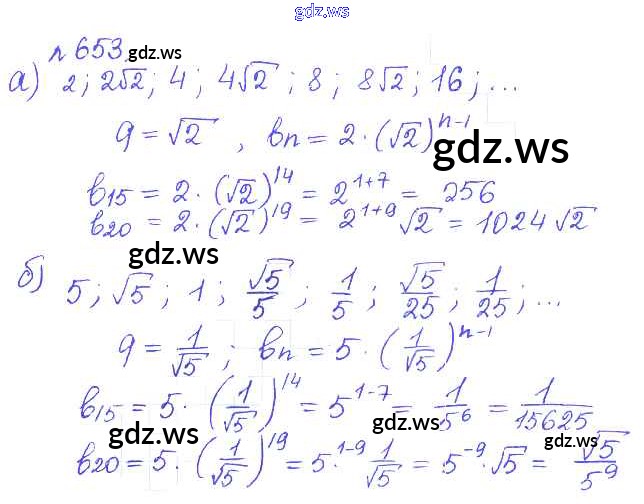 gdz.ws
№ 653 gdz.ws
а) 2; 2√2; 4; 4√2; 8; 8√2; 16; ...
q = √2, bn = 2·(√2)^(n-1) gdz.ws
b15 = 2·(√2)^14 = 2^(1+7) = 256
b20 = 2·(√2)^19 = 2^(1+9)√2 = 1024√2
gdz.ws
б) 5; √5; 1; √5/5; 1/5; √5/25; 1/25; ...
q = 1/√5; bn = 5·(1/√5)^(n-1)
b15 = 5·(1/√5)^14 = 5^(1-7) = 1/5^6 = 1/15625
gdz.ws gdz.ws gdz.ws
b20 = 5·(1/√5)^19 = 5^(1-9)·1/√5 = 5^(-9)·√5 = √5/5^9